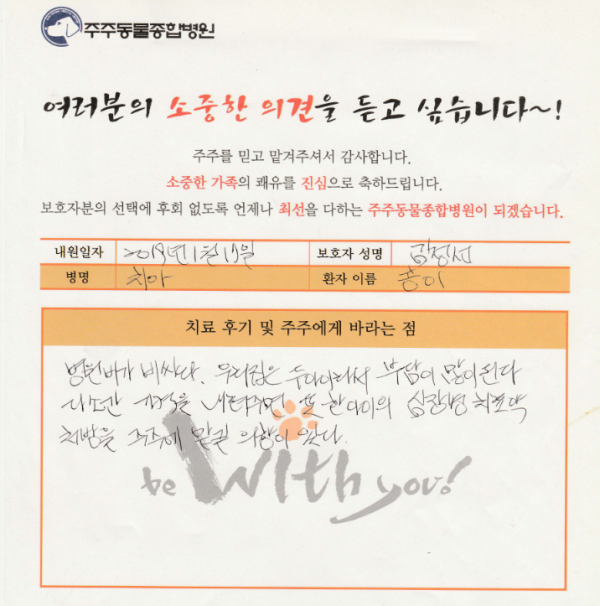 주주동물종합병원
여러분의 소중한 의견을 듣고 싶습니다~!
주주를 믿고 맡겨주셔서 감사합니다.
소중한 가족의 쾌유를 진심으로 축하드립니다.
보호자분의 선택에 후회 없도록 언제나 최선을 다하는 주주동물종합병원이 되겠습니다.
내원일자 2019년 1월 17일 보호자 성명 김정선
병명 치아 환자 이름 콩이
치료 후기 및 주주에게 바라는 점
병원비가 비싸다. 우리집은 두아이라서 부담이 많이된다
다소간 가격을 내려주면 또 한아이의 심장병 치료약
처방을 주주에 맡길 의향이 있다.
be With you!